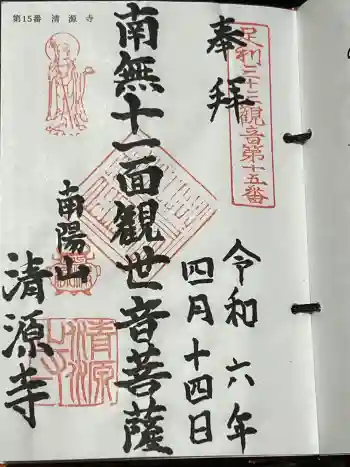 第15番 清源寺
足利三十三観音第十五番
奉拝
令和六年
四月十四日
南無十一面観世音菩薩
南陽山
清源寺
清源